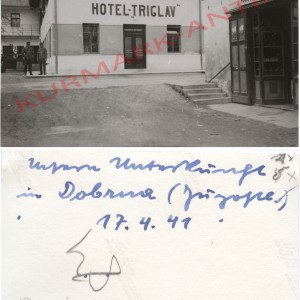 HOTEL-TRIGLAV
KURMARK-ANTI
Unsere Unterkunft
in Dobrna (Jugosl.)
17.4.41